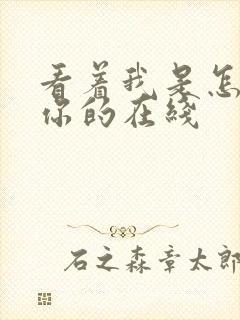 看着我是怎
你的在线
石之森章太郎